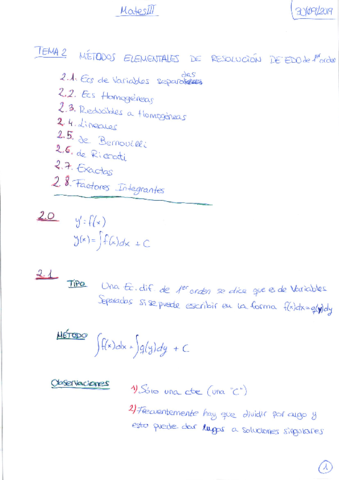 Mates III
30/09/2019
TEMA 2 MÉTODOS ELEMENTALES DE RESOLUCIÓN DE EDO de 1er orden
2.1. Ecs de Variables Separadas
2.2. Ecs Homogéneas
2.3. Reducibles a Homogéneas
2.4. Lineales
2.5. de Bernouilli
2.6. de Riccati
2.7. Exactas
2.8. Factores Integrantes
2.0 y'=f(x)
y(x)=∫f(x)dx + C
2.1
TIPO Una Ec. dif de 1er orden se dice que es de Variables
Separadas si se puede escribir en la forma f(x)dx=g(y)dy
MÉTODO ∫f(x)dx=∫g(y)dy + C
Observaciones 1) Sólo una cte (una "C")
2) Frecuentemente hay que dividir por algo y
esto puede dar lugar a soluciones singulares
1